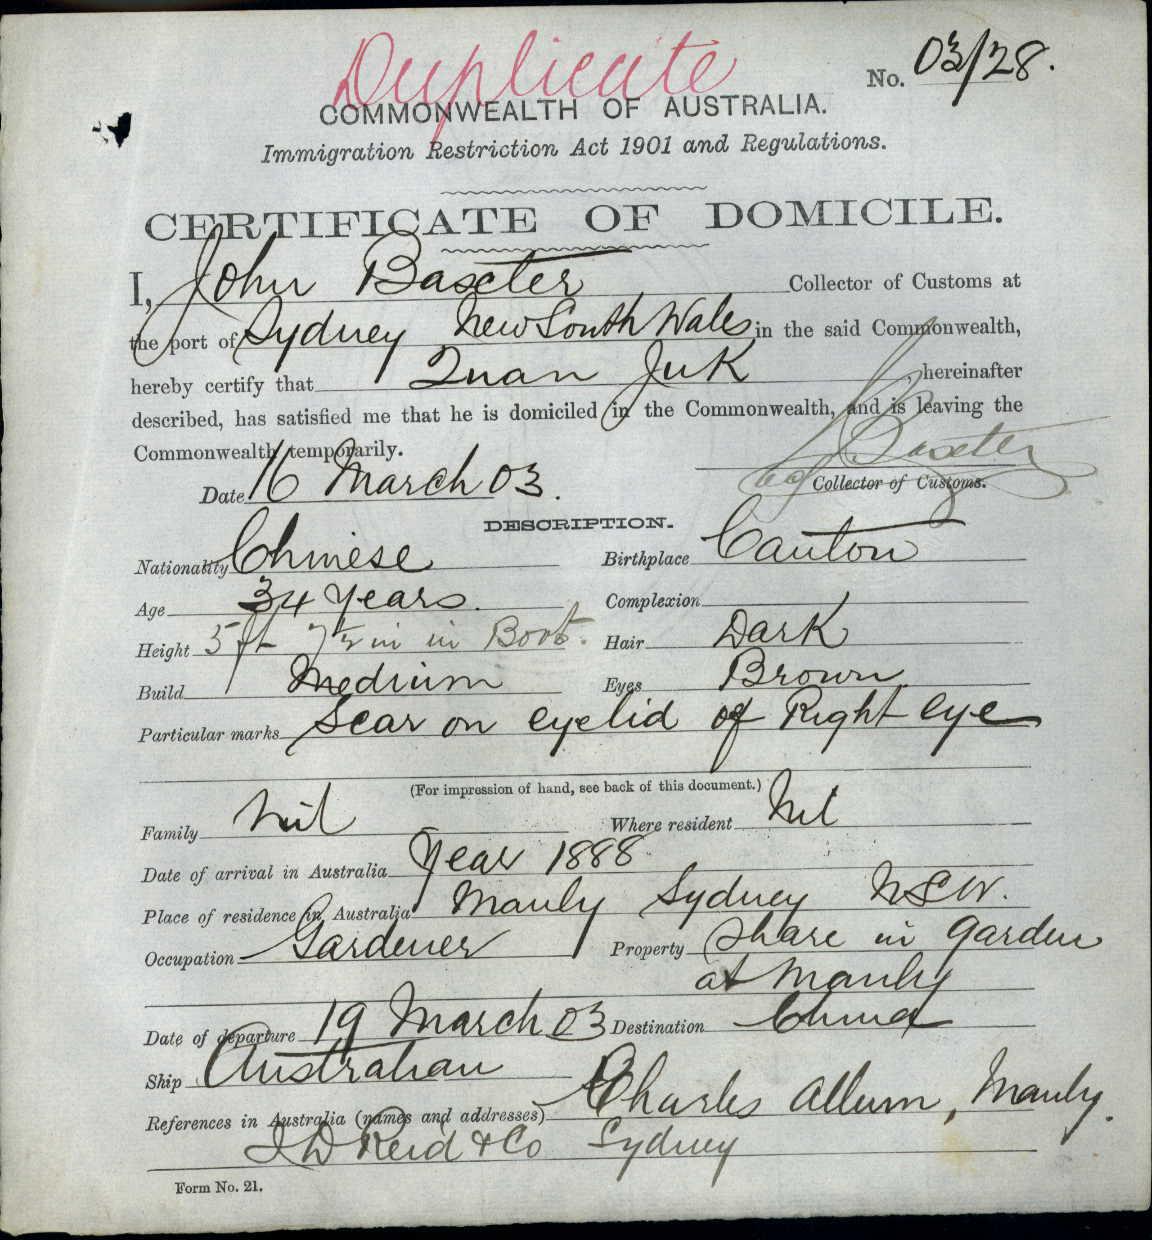 Duplicate
No. 03/28.
COMMONWEALTH OF AUSTRALIA.
Immigration Restriction Act 1901 and Regulations.
CERTIFICATE OF DOMICILE.
I, John Baxter Collector of Customs at
the port of Sydney New South Wales in the said Commonwealth,
hereby certify that Quan Juk hereinafter
described, has satisfied me that he is domiciled in the Commonwealth, and is leaving the
Commonwealth temporarily.
Baxter
Date 16 March 03. Collector of Customs.
DESCRIPTION.
Nationality Chinese Birthplace Canton
Age 34 years. Complexion
Height 5 ft 7½ in in Boots. Hair Dark
Build Medium Eyes Brown
Particular marks Scar on eyelid of Right eye
(For impression of hand, see back of this document.)
Family Nil Where resident Nil
Date of arrival in Australia Year 1888
Place of residence in Australia Manly Sydney NSW.
Occupation Gardener Property Share in garden
at Manly
Date of departure 19 March 03 Destination China
Ship Australian
References in Australia (names and addresses) Charles Allum, Manly.
J D Reid & Co Sydney
Form No. 21.